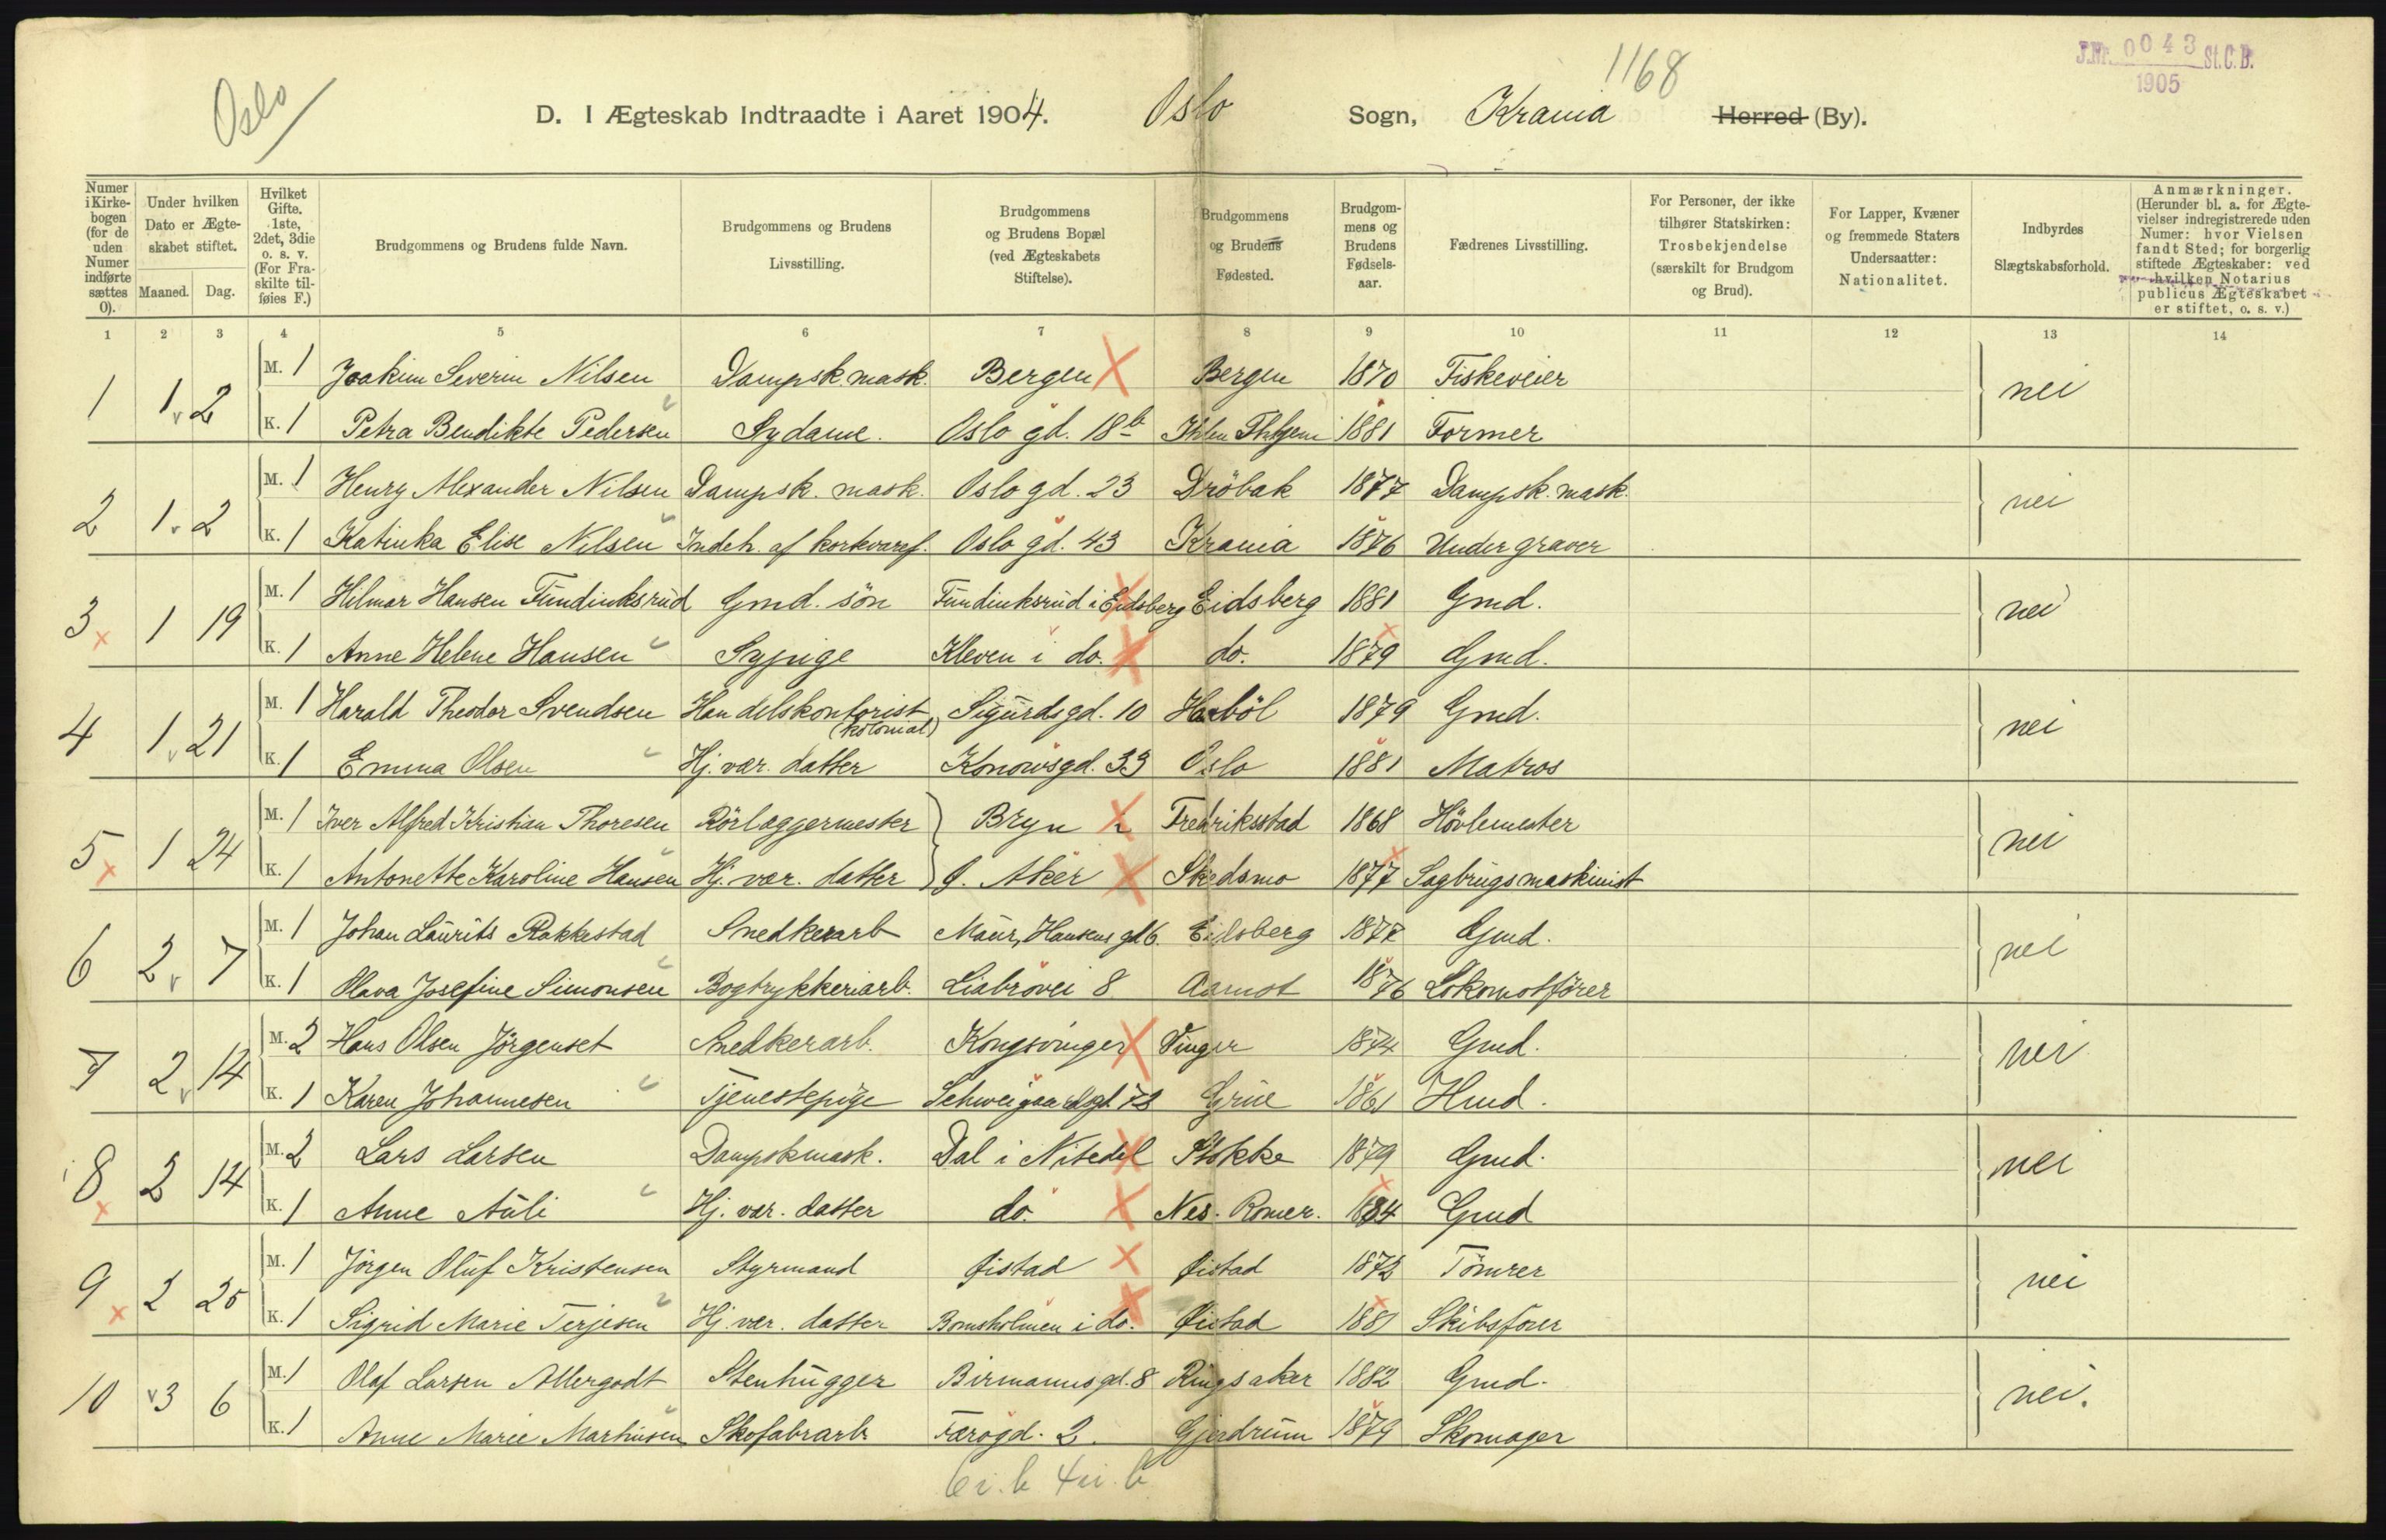 Oslo
1168
J.Nr. 0043 St.C.B.
1905
D. I Ægteskab Indtraadte i Aaret 1904. Oslo Sogn, Krania Herred (By).
Numer i Kirkebogen (for de uden Numer indførte sættes 0).
Under hvilken Dato er Ægteskabet stiftet.
Maaned. Dag.
Hvilket Gifte. 1ste, 2det, 3die o. s. v. (For Fraskilte tilføies F.)
Brudgommens og Brudens fulde Navn.
Brudgommens og Brudens Livsstilling.
Brudgommens og Brudens Bopæl (ved Ægteskabets Stiftelse).
Brudgommens og Brudens Fødested.
Brudgommens og Brudens Fødselsaar.
Fædrenes Livsstilling.
For Personer, der ikke tilhører Statskirken: Trosbekjendelse (særskilt for Brudgom og Brud).
For Lapper, Kvæner og fremmede Staters Undersaatter: Nationalitet.
Indbyrdes Slægtskabsforhold.
Anmærkninger. (Herunder bl. a. for Ægtevielser indregistrerede uden Numer: hvor Vielsen fandt Sted; for borgerlig stiftede Ægteskaber: ved hvilken Notarius publicus Ægteskabet er stiftet, o. s. v.)
1 2 3 4 5 6 7 8 9 10 11 12 13 14
1 1 2 M. 1 Joakim Severin Nilsen Dampsk. mask. Bergen Bergen 1870 Fiskeveier nei
K. 1 Petra Bendikte Pedersen Sydame. Oslo gd. 18b Ihlen Thhjem 1881 Former
2 1 2 M. 1 Henry Alexander Nilsen Dampsk. mask. Oslo gd. 23 Dröbak 1877 Dampsk. mask. nei
K. 1 Katinka Elise Nilsen Indeh. af korkvaref. Oslo gd. 43 Krania 1876 Undergraver
3 1 19 M. 1 Hilmar Hansen Fundinksrud Gmd. sön Fundinksrud i Eidsberg Eidsberg 1881 Gmd. nei
K. 1 Anne Helene Hansen Sypige Kleven i do. do. 1879 Gmd.
4 1 21 M. 1 Harald Theodor Svendsen Handelskontorist (kolonial) Sigurds gd. 10 Haabøl 1879 Gmd. nei
K. 1 Emma Olsen Hj. vær. datter Konowsgd. 33 Oslo 1881 Matros
5 1 24 M. 1 Iver Alfred Kristian Thoresen Rörlæggermester Bryn Fredriksstad 1868 Hövlemester nei
K. 1 Antonette Karoline Hansen Hj. vær. datter Ø. Aker Skedsmo 1877 Sagbrugsmaskinist
6 2 7 M. 1 Johan Laurits Rakkestad Snedkerarb Maur. Hansens gd 6 Eidsberg 1877 Gmd. nei
K. 1 Olava Josefine Simonsen Bogtrykkeriarb. Liabrovei 8 Aamot 1876 Lokomotfører
7 2 14 M. 2 Hans Olsen Jörgenset Snedkerarb. Kongsvinger Vinger 1874 Gmd. nei
K. 1 Karen Johannesen Tjenestepige Schweigaardsgd 73 Grue 1861 Hmd.
8 2 14 M. 2 Lars Larsen Dampskmask. Dal i Nitedal Stokke 1879 Gmd. nei
K. 1 Anne Auli Hj. vær. datter do. Nes. Romer. 1884 Gmd
9 2 25 M. 1 Jörgen Oluf Kristensen Styrmand Øistad Øistad 1872 Tömrer nei
K. 1 Sigrid Marie Terjesen Hj. vær. datter Bomsholmen i do. Øistad 1881 Skibsfører
10 3 6 M. 1 Olaf Larsen Allergodt Stenhugger Birmannsgd. 8 Ringsaker 1882 Gmd. nei.
K. 1 Anne Marie Martinsen Skofabrarb Færøgd. 2. Gjerdrum 1879 Skomager
6 i. b 4 u. b